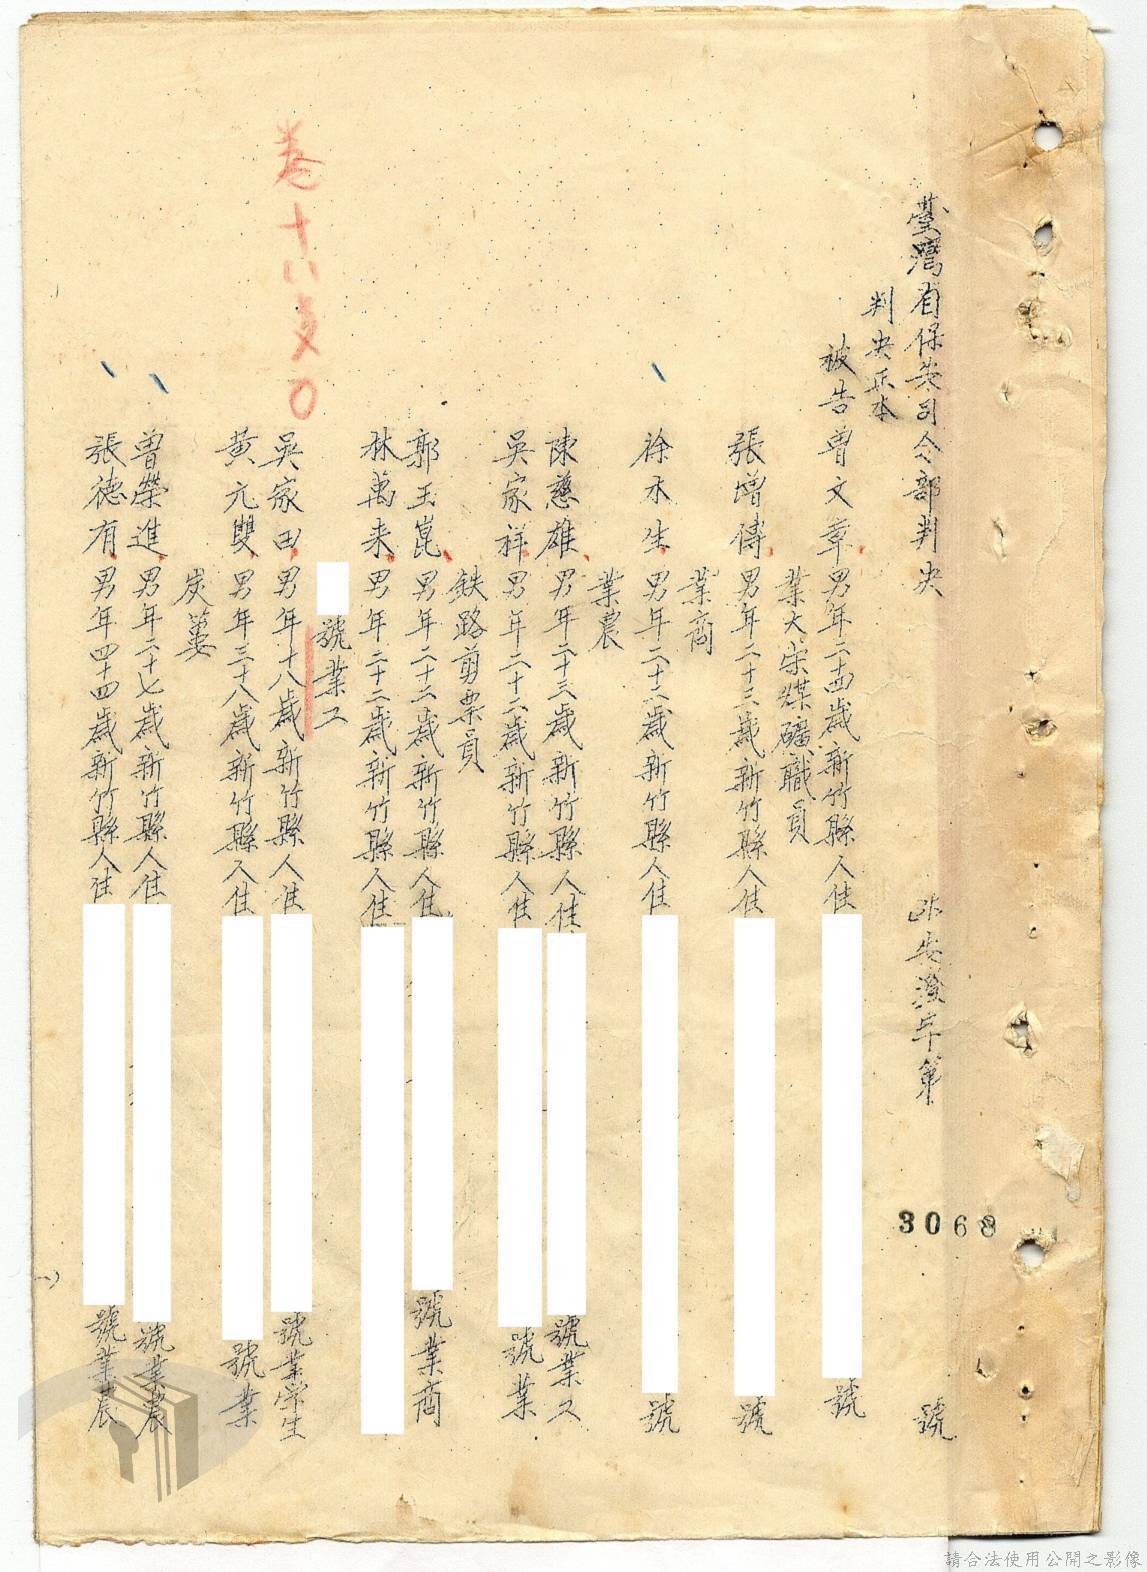 臺灣省保安司令部判決 安潔字第3068號
判決正本
被告曾文章男年二十四歲新竹縣人住 號
業大榮煤礦職員
張增傳男年二十三歲新竹縣人住 號
業商
徐木生男年二十二歲新竹縣人住 號
業農
陳慈雄男年二十三歲新竹縣人住 號業工
吳家祥男年二十六歲新竹縣人住 號業
鉄路剪票員
郭玉崑男年二十二歲新竹縣人住 號業商
林萬来男年二十二歲新竹縣人住
號業工
吳家田男年十八歲新竹縣人住 號業学生
黃九雙男年三十八歲新竹縣人住 號業
炭
曾榮進男年二十七歲新竹縣人住 號業農
張德有男年四十四歲新竹縣人住 號業農
(一)
卷十八
請合法使用公開之影像